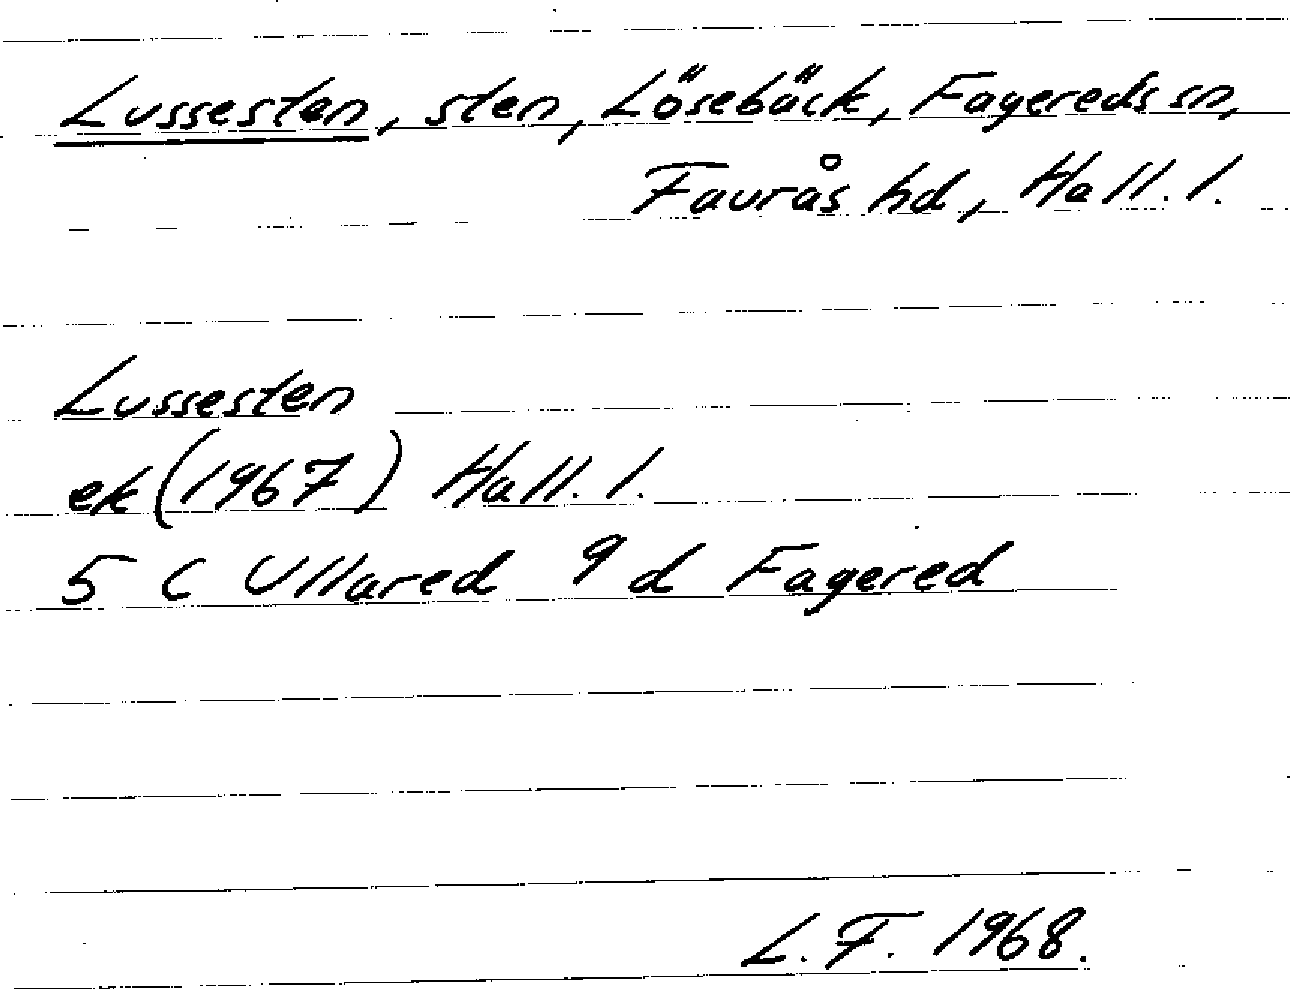 Lussesten, sten, Lösebäck, Fagereds sn,
Faurås hd, Hall. l.
Lussesten
ek (1967) Hall. l.
5 C Ullared 9 d Fagered
L. F. 1968.